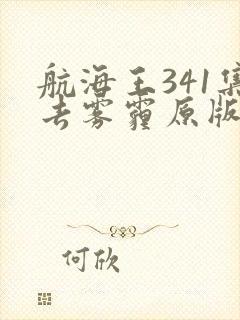 航海王341集
去雾霾原版
何欣